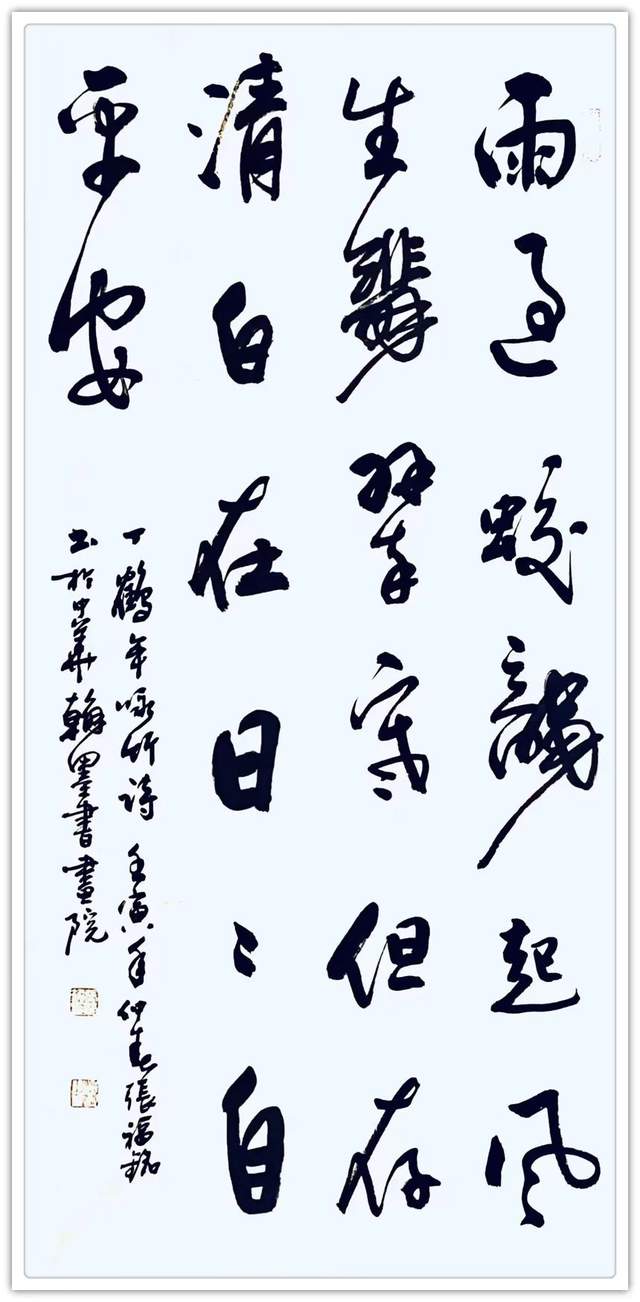 雨過蛟龍起風
生翡翠寒但存
清白在日〻自
平安
丁鶴年咏竹詩 壬寅年仲春張福銘
書於中華翰墨書畫院